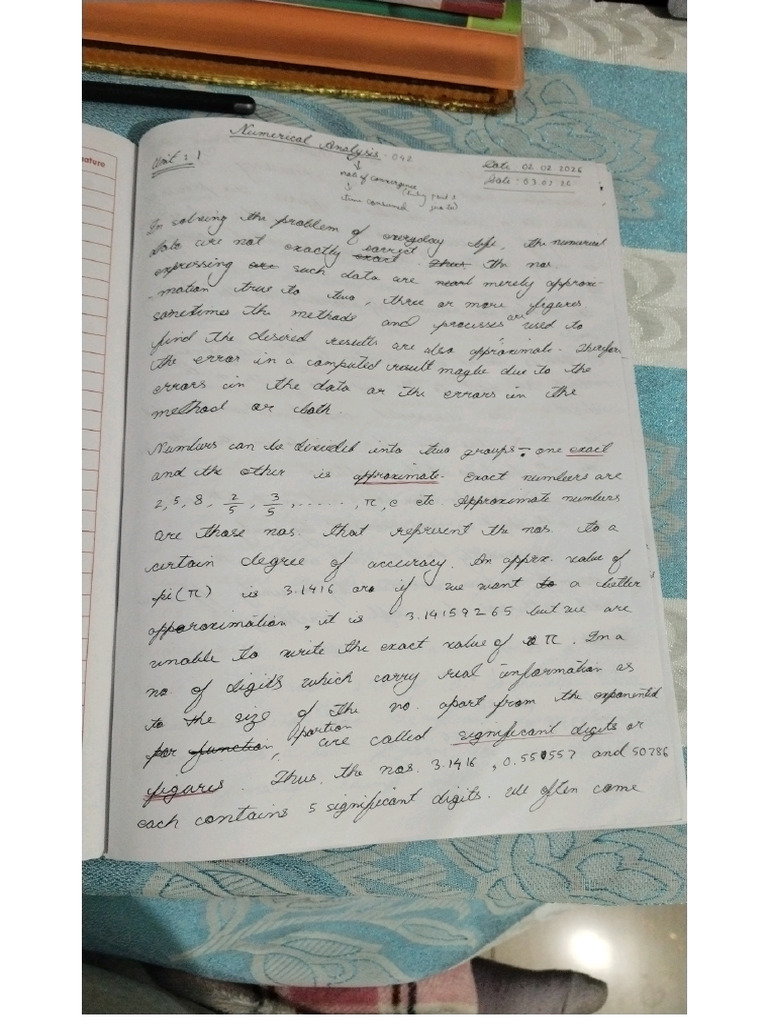 nature
Numerical Analysis - 042
Unit : 1
Date 02.02.2026
Date : 03.02.26
nos of convergence
time consumed
In solving the problem of everyday life, the numerical
data are not exactly correct exact. Thus the nos.
expressing are such data are merely approxi-
-mation true to two, three or more figures
sometimes the methods and processes are used to
find the desired results are also approximate. Therefore
the error in a computed result maybe due to the
errors in the data or the errors in the
method or both.
Numbers can be divided into two groups - one exact
and the other is approximate. Exact numbers are
2, 5, 8, 2/5, 3/5, ......, π, e etc. Approximate numbers
are those nos. that represent the nos. to a
certain degree of accuracy. An approx. value of
pi (π) is 3.1416 or if we want to a better
approximation, it is 3.14159265 but we are
unable to write the exact value of π. In a
no of digits which carry real information as
to the size of the no. apart from the exponential
for function, portion are called significant digits or
figures. Thus, the nos. 3.1416, 0.550557 and 50786
each contains 5 significant digits. We often come